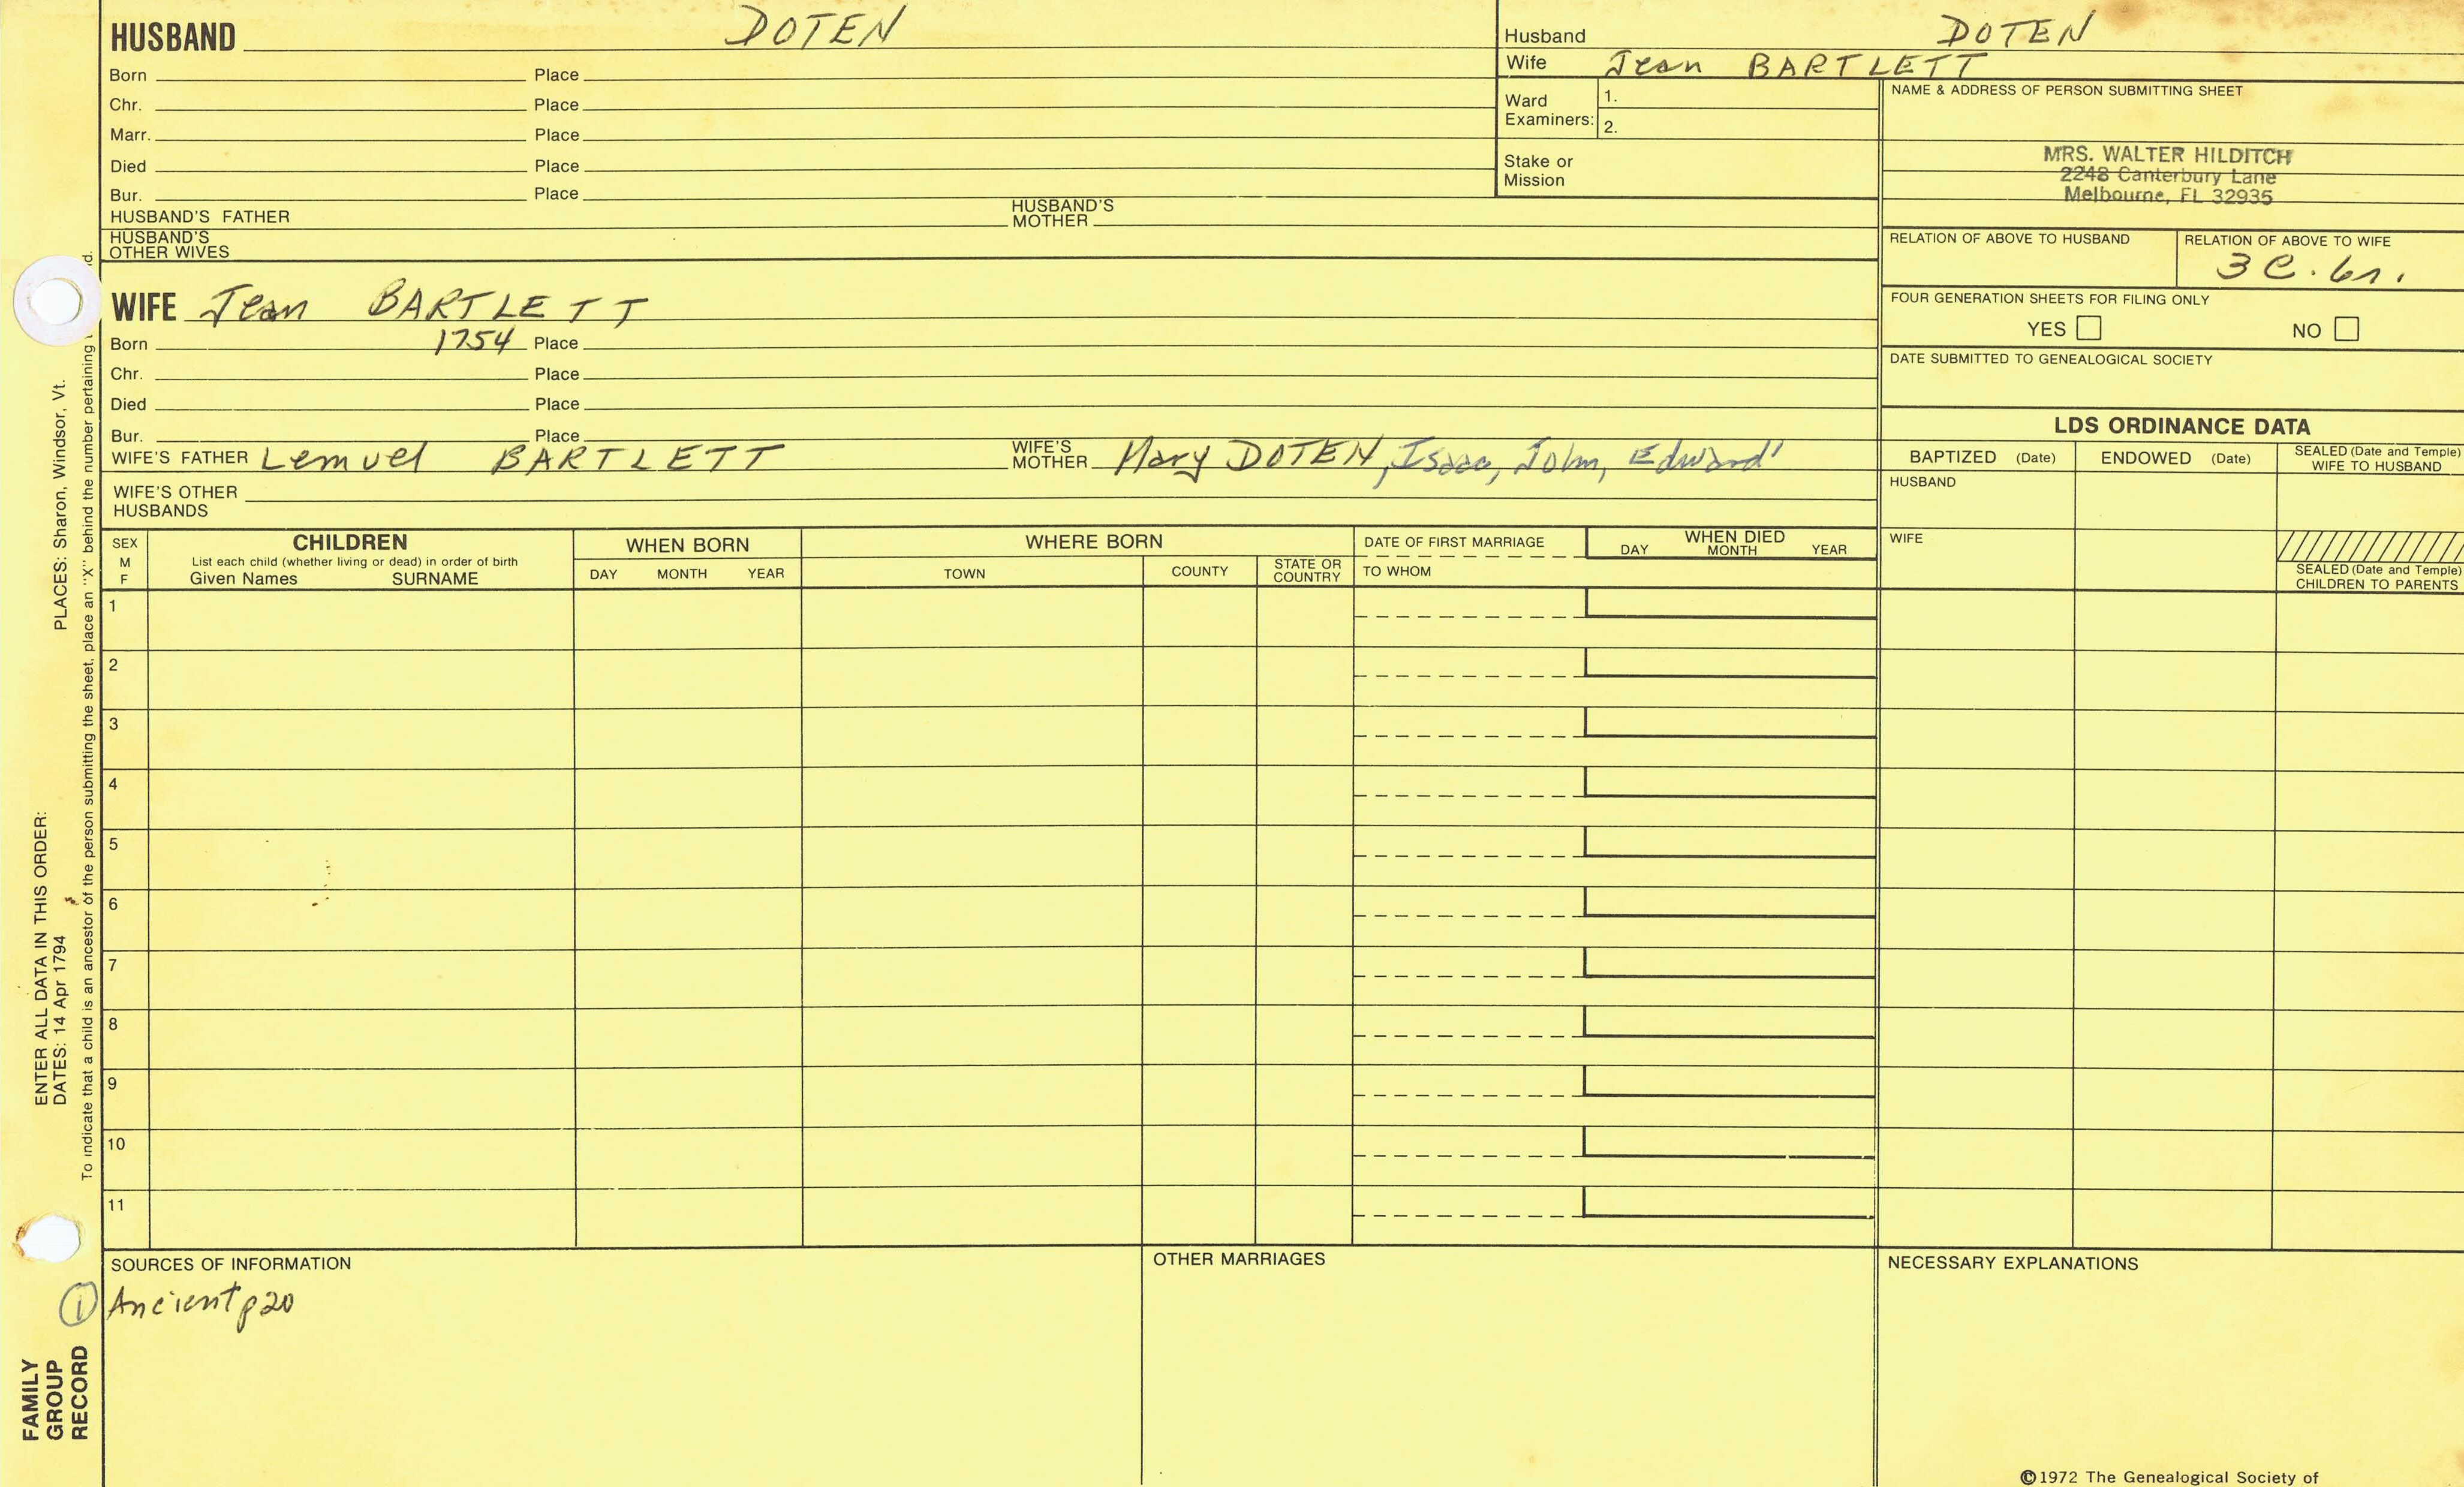 HUSBAND DOTEN
Born Place
Chr. Place
Marr. Place
Died Place
Bur. Place
HUSBAND'S FATHER HUSBAND'S MOTHER
HUSBAND'S OTHER WIVES
Husband DOTEN
Wife Jean BARTLETT
Ward Examiners: 1.
2.
Stake or Mission
NAME & ADDRESS OF PERSON SUBMITTING SHEET
MRS. WALTER HILDITCH
2248 Canterbury Lane
Melbourne, FL 32935
RELATION OF ABOVE TO HUSBAND
RELATION OF ABOVE TO WIFE
3 C. 6r.
FOUR GENERATION SHEETS FOR FILING ONLY
YES NO
DATE SUBMITTED TO GENEALOGICAL SOCIETY
WIFE Jean BARTLETT
Born 1754 Place
Chr. Place
Died Place
Bur. Place
WIFE'S FATHER Lemuel BARTLETT WIFE'S MOTHER Mary DOTEN, Isaac, John, Edward'
WIFE'S OTHER HUSBANDS
LDS ORDINANCE DATA
BAPTIZED (Date) ENDOWED (Date) SEALED (Date and Temple) WIFE TO HUSBAND
HUSBAND
WIFE
SEALED (Date and Temple) CHILDREN TO PARENTS
SEX M F
CHILDREN
List each child (whether living or dead) in order of birth
Given Names SURNAME
WHEN BORN
DAY MONTH YEAR
WHERE BORN
TOWN COUNTY STATE OR COUNTRY
DATE OF FIRST MARRIAGE
TO WHOM
WHEN DIED
DAY MONTH YEAR
1
2
3
4
5
6
7
8
9
10
11
SOURCES OF INFORMATION
① Ancient p20
OTHER MARRIAGES
NECESSARY EXPLANATIONS
©1972 The Genealogical Society of
ENTER ALL DATA IN THIS ORDER:
DATES: 14 Apr 1794 PLACES: Sharon, Windsor, Vt.
To indicate that a child is an ancestor of the person submitting the sheet, place an "X" behind the number pertaining
d.
FAMILY
GROUP
RECORD